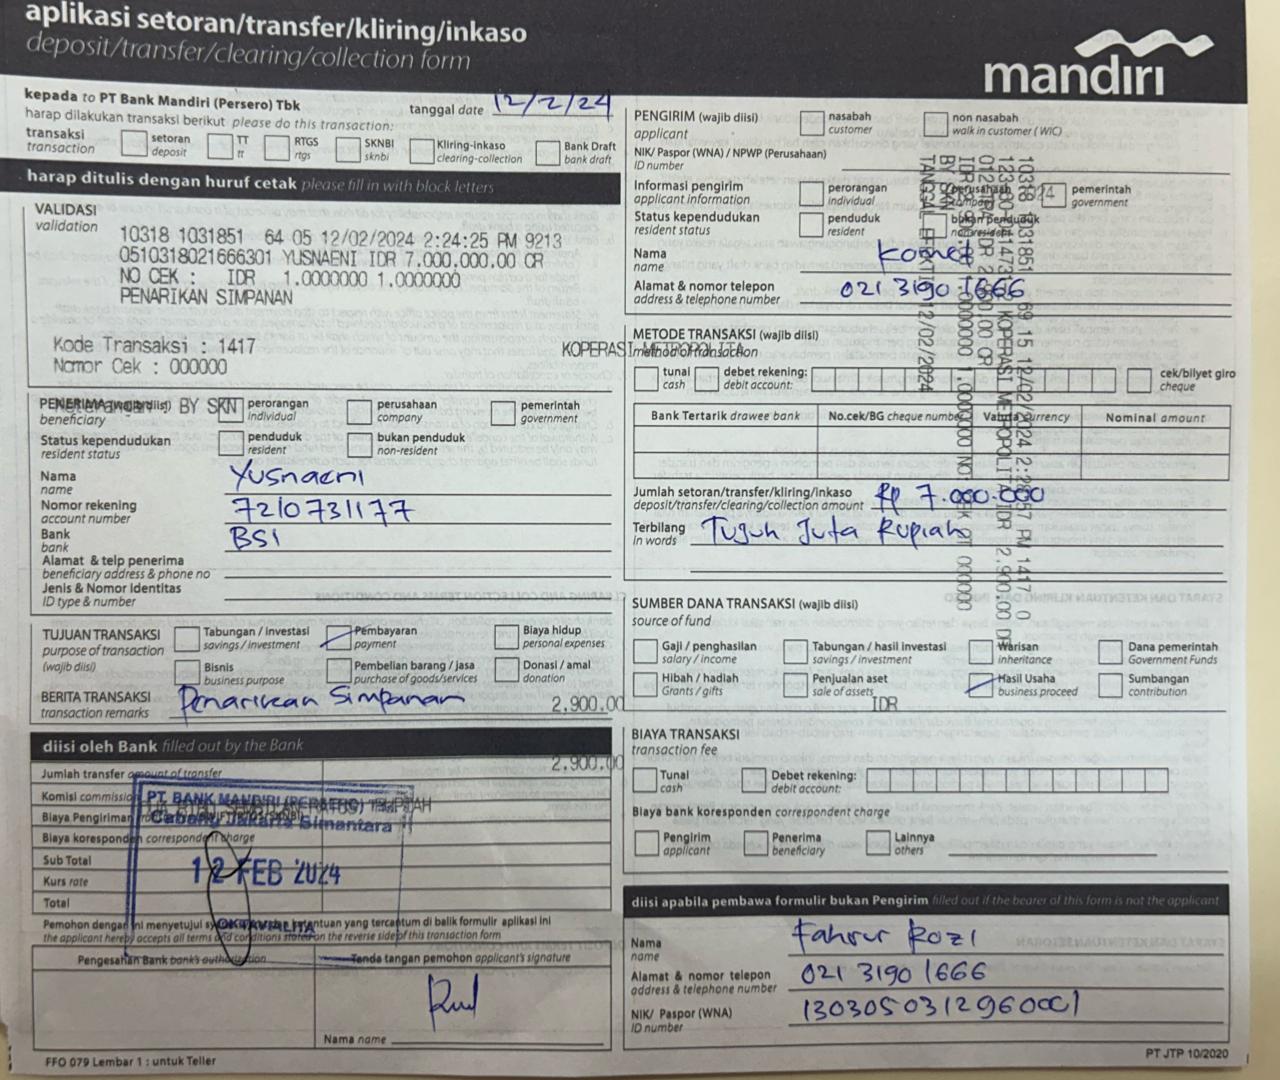 aplikasi setoran/transfer/kliring/inkaso
deposit/transfer/clearing/collection form
mandiri
kepada to PT Bank Mandiri (Persero) Tbk
tanggal date 12/2/24
harap dilakukan transaksi berikut please do this transaction:
transaksi
transaction
setoran
deposit
TT
tt
RTGS
rtgs
SKNBI
sknbi
Kliring-inkaso
clearing-collection
Bank Draft
bank draft
harap ditulis dengan huruf cetak please fill in with block letters
VALIDASI
validation
10318 1031851 64 05 12/02/2024 2:24:25 PM 9213
0510318021666301 YUSNAENI IDR 7.000.000.00 CR
NO CEK : IDR 1.0000000 1.0000000
PENARIKAN SIMPANAN
Kode Transaksi : 1417
Nomor Cek : 000000
KOPERASI METROPOLITA
PENERIMA (wajib diisi)
beneficiary
BY SKN
perorangan
individual
perusahaan
company
pemerintah
government
Status kependudukan
resident status
penduduk
resident
bukan penduduk
non-resident
Nama Yusnaeni
name
Nomor rekening 7210731177
account number
Bank BSI
bank
Alamat & telp penerima
beneficiary address & phone no
Jenis & Nomor Identitas
ID type & number
TUJUAN TRANSAKSI
purpose of transaction
(wajib diisi)
Tabungan / investasi
savings / investment
Pembayaran
payment
Biaya hidup
personal expenses
Bisnis
business purpose
Pembelian barang / jasa
purchase of goods/services
Donasi / amal
donation
BERITA TRANSAKSI Penarikan Simpanan
transaction remarks
2,900.00
diisi oleh Bank filled out by the Bank
2,900.00
Jumlah transfer amount of transfer
Komisi commission
Biaya Pengiriman
Biaya koresponden correspondent charge
Sub Total
Kurs rate
Total
PT. BANK MANDIRI (PERSERO) Tbk
12 FEB 2024
OKTAVIALITA
Pemohon dengan ini menyetujui ketentuan yang tercantum di balik formulir aplikasi ini
the applicant hereby accepts all terms and conditions stated on the reverse side of this transaction form
Pengesahan Bank bank's authorization
Tanda tangan pemohon applicant's signature
Nama name
FFO 079 Lembar 1 : untuk Teller
PENGIRIM (wajib diisi)
applicant
nasabah
customer
non nasabah
walk in customer (WIC)
NIK/ Paspor (WNA) / NPWP (Perusahaan)
ID number
Informasi pengirim
applicant information
perorangan
individual
perusahaan
company
pemerintah
government
Status kependudukan
resident status
penduduk
resident
bukan penduduk
nonresident
Nama Komet
name
Alamat & nomor telepon 021 3190 1666
address & telephone number
METODE TRANSAKSI (wajib diisi)
method of transaction
tunai
cash
debet rekening:
debit account:
cek/bilyet giro
cheque
Bank Tertarik drawee bank
No.cek/BG cheque number
Valuta currency
Nominal amount
Jumlah setoran/transfer/kliring/inkaso Rp 7.000.000
deposit/transfer/clearing/collection amount
Terbilang Tujuh Juta Rupiah
in words
SUMBER DANA TRANSAKSI (wajib diisi)
source of fund
Gaji / penghasilan
salary / income
Tabungan / hasil investasi
savings / investment
Warisan
inheritance
Dana pemerintah
Government Funds
Hibah / hadiah
Grants / gifts
Penjualan aset
sale of assets
Hasil Usaha
business proceed
Sumbangan
contribution
IDR
BIAYA TRANSAKSI
transaction fee
Tunai
cash
Debet rekening:
debit account:
Biaya bank koresponden correspondent charge
Pengirim
applicant
Penerima
beneficiary
Lainnya
others
diisi apabila pembawa formulir bukan Pengirim filled out if the bearer of this form is not the applicant
Nama Fahrur Rozi
name
Alamat & nomor telepon 021 3190 1666
address & telephone number
NIK/ Paspor (WNA) 1303050312960001
ID number
PT JTP 10/2020